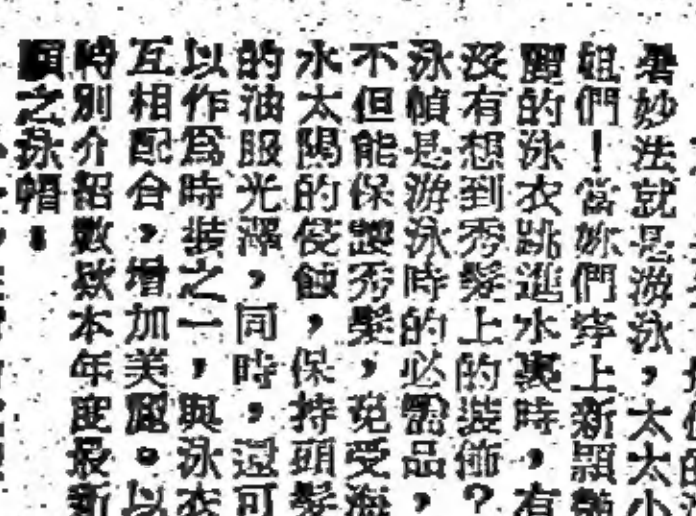 暑妙法就是游泳，太太小
姐們！當妳們穿上新穎艷
麗的泳衣跳進水裏時，有
沒有想到秀髮上的裝飾？
泳幀是游泳時的必需品，
不但能保護秀髮，免受海
水太陽的侵蝕，保持頭髮
的油服光澤，同時，還可
以作爲時裝之一，與泳衣
互相配合，增加美麗。以
時別介紹數欵本年度最新
穎之泳帽。